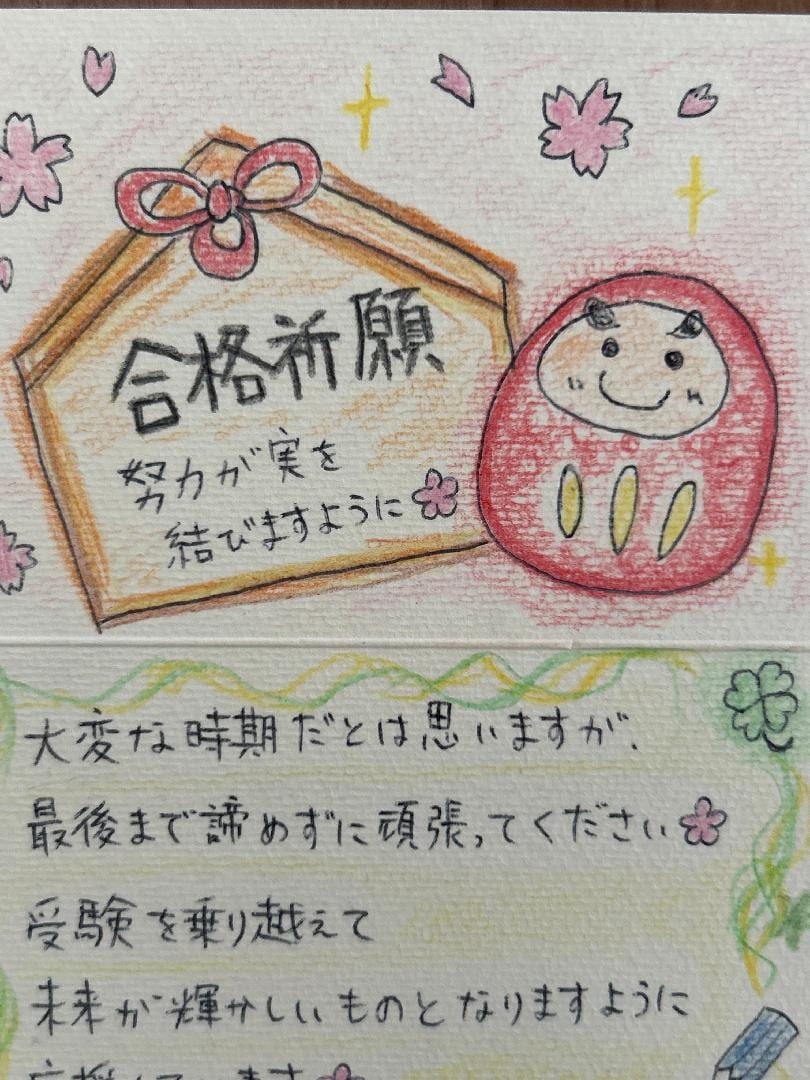 合格祈願
努力が実を
結びますように
大変な時期だとは思いますが、
最後まで諦めずに頑張ってください
受験を乗り越えて
未来が輝かしいものとなりますように